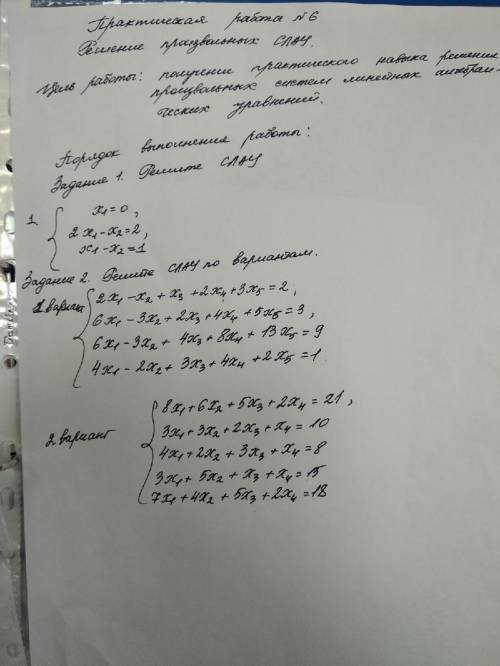 Практическая работа №6
Решение произвольных СЛАУ.
Цель работы: получении практического навыка решения
произвольных систем линейных алгебраи-
ческих уравнений.
Порядок выполнения работы:
Задание 1. Решите СЛАУ
1. x₁=0,
2x₁-x₂=2,
x₁-x₂=1
Задание 2. Решите СЛАУ по вариантам.
1 вариант 2x₁-x₂+x₃+2x₄+3x₅=2,
6x₁-3x₂+2x₃+4x₄+5x₅=3,
6x₁-3x₂+4x₃+8x₄+13x₅=9
4x₁-2x₂+3x₃+4x₄+2x₅=1.
2 вариант 8x₁+6x₂+5x₃+2x₄=21,
3x₁+3x₂+2x₃+x₄=10
4x₁+2x₂+3x₃+x₄=8
3x₁+5x₂+x₃+x₄=15
7x₁+4x₂+5x₃+2x₄=18